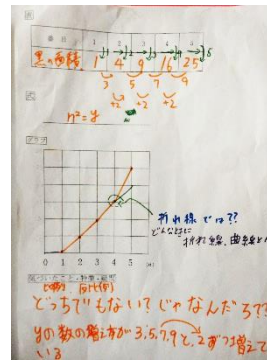 表
番目 1 2 3 4 5
黒の面積 1 4 9 16 25
3 5 7 9
+2 +2 +2
式
n²=y
グラフ
折れ線では??
どんなときに
折れ線、曲線と
0 1 2 3 4 5
比例 反比例
どっちでもない？じゃなんだろ??
yの数の増え方が3.5.7.9と、2ずつ増えて
いる